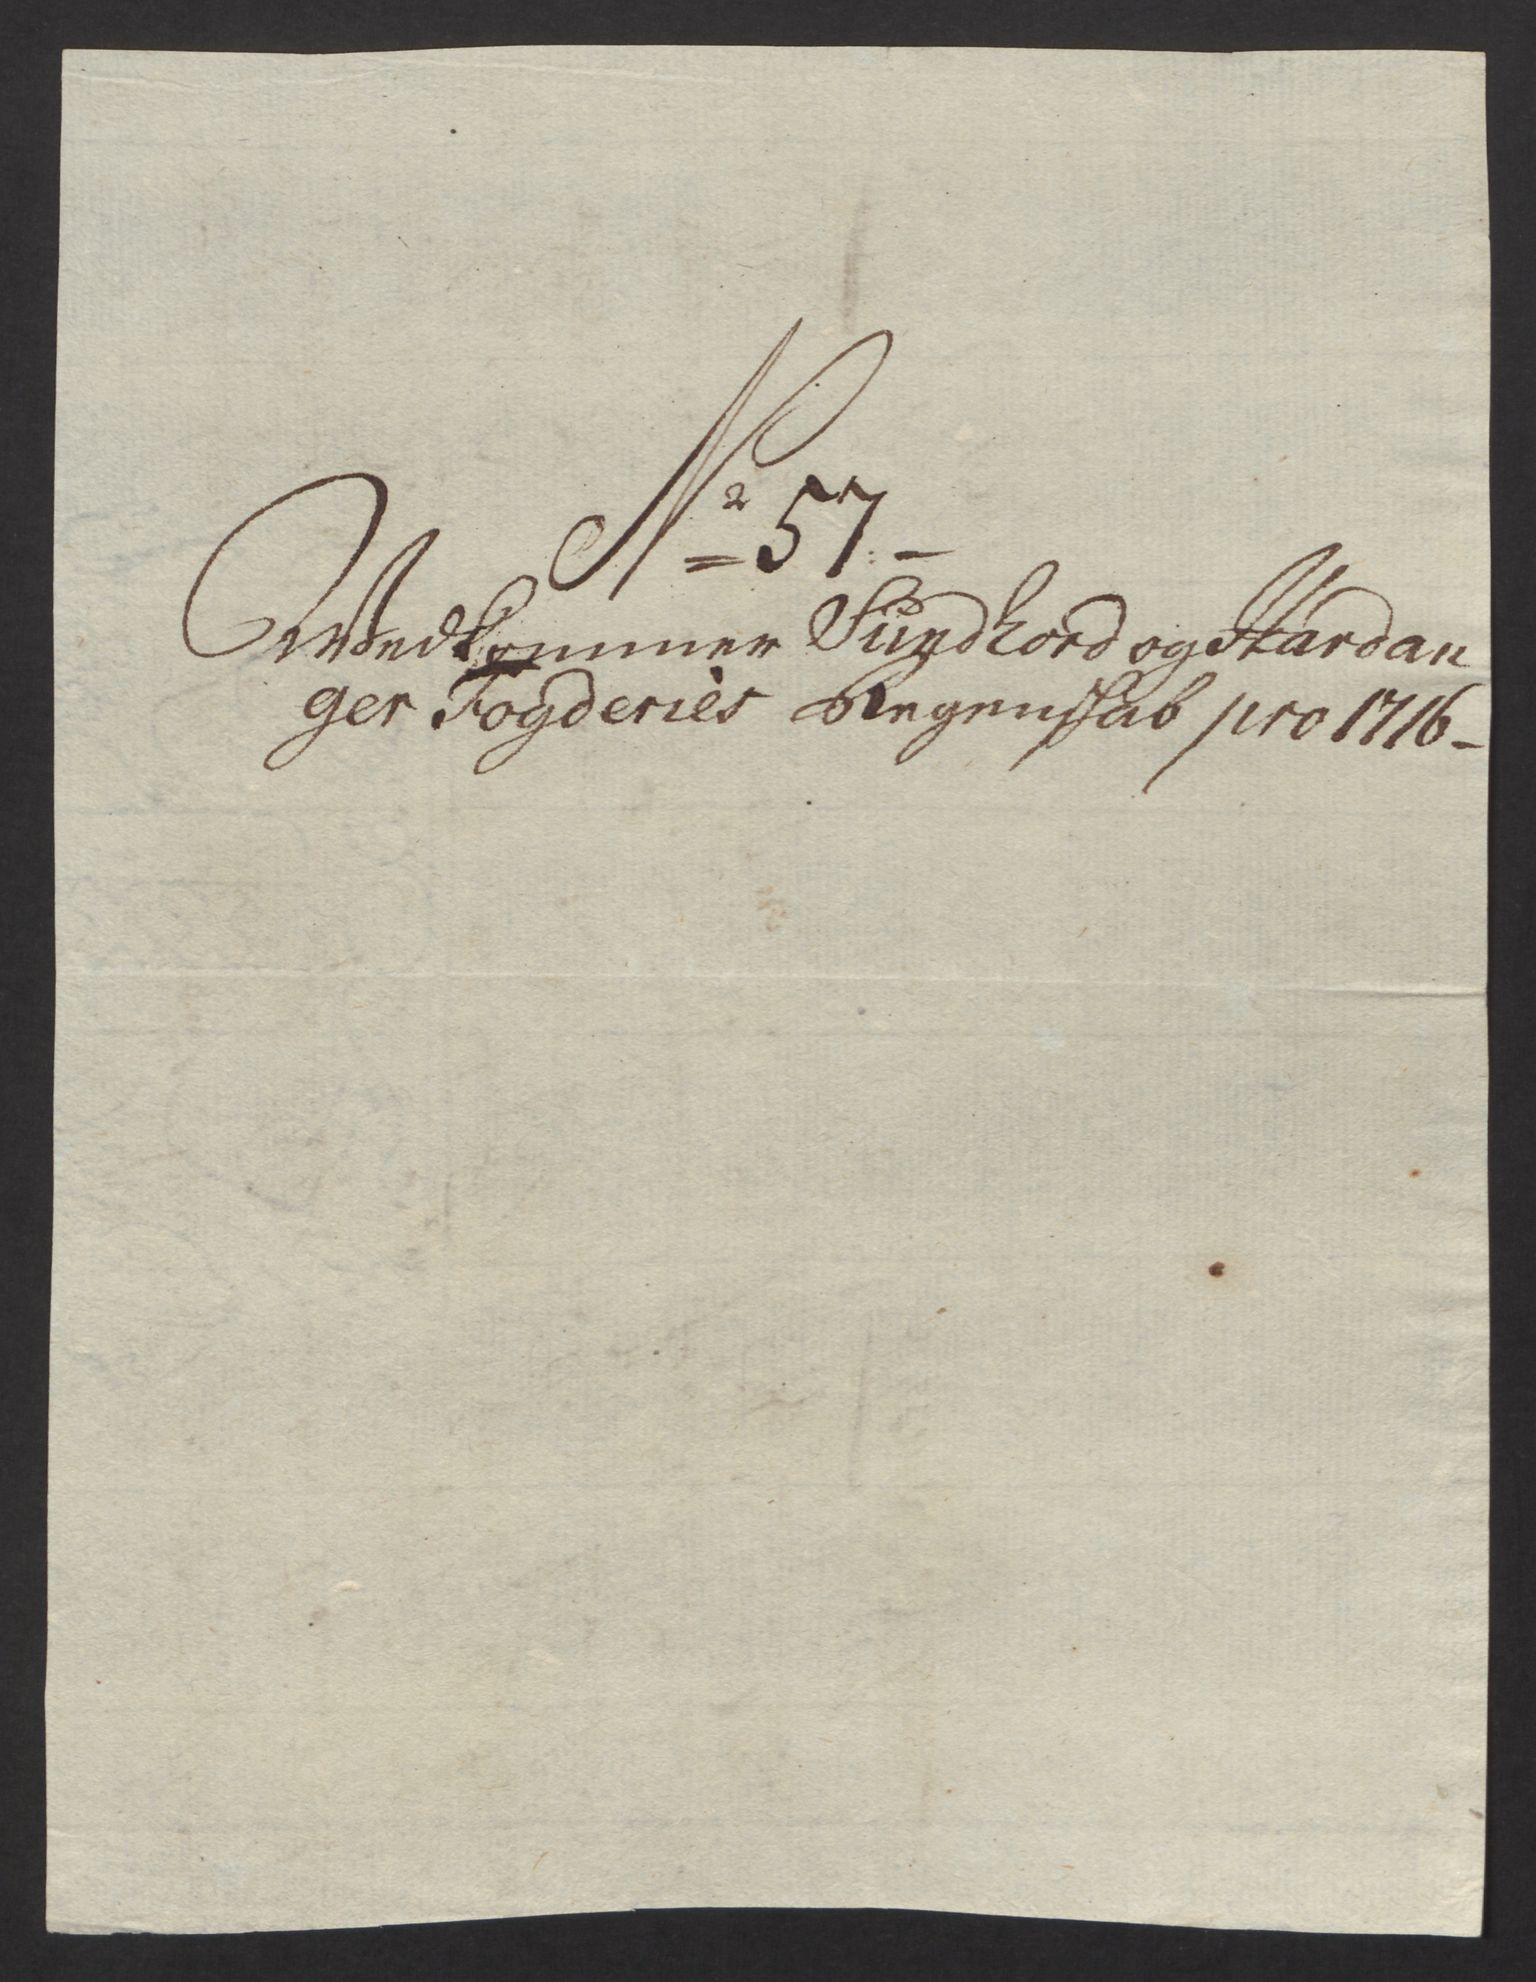 No 57.
Wedkommer Sundhord og Hardan
ger Fogderies Regenskab pro 1716